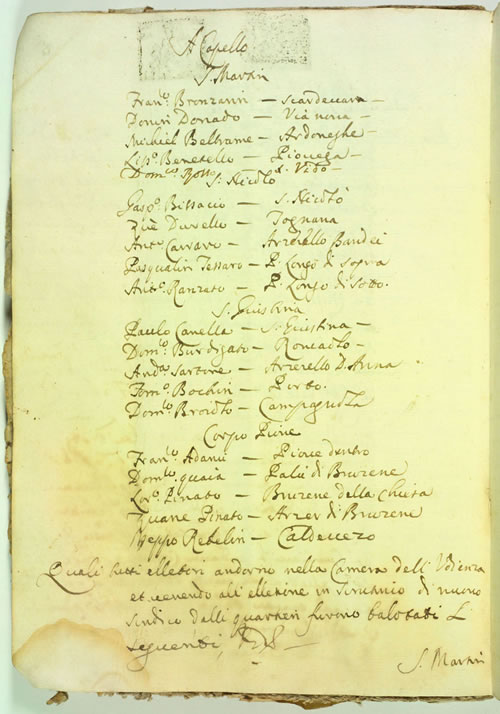 A Capello
S. Martin
Fran.o Bronzarin – Scardeuara –
Domin Donado – Via noua –
Michiel Beltrame – Ardoneghe –
Benetello – Piouega –
Dom.co Rosso S. Vido –
S. Nicolò
Gasp.o Bissacco – S. Nicolò
Zuè Duvello – Tognana
Ant.o Carraro – Arzerello Bandei
Pasqualin Tessaro – P. Longo di Sopra
Ant.o Ranzato – P. Longo di Sotto.
S. Giustina
Paulo Canella – S. Giustina –
Dom.o Burdigato – Roncaolo –
And.a Sartore – Arzerello D. Anna
Tom.o Bochin – Porto.
Dom.o Broiolo – Campagnola
Corpo Pioue
Fran.o Adami – Pioue dentro
Dom.co quaia – Palù di Bruzene
Lor.o Pinato – Bruzene della Chiesa
Zuane Pinato – Arzer di Bruzene
Beppo Rebelin – Caldeuezo
Quali tutti elletori andorno nella Camera dell Vdienza
et uenendo all elletione in scrutinio di nuouo
sindico delli quartieri furono balotati li
seguenti,
S. Martin